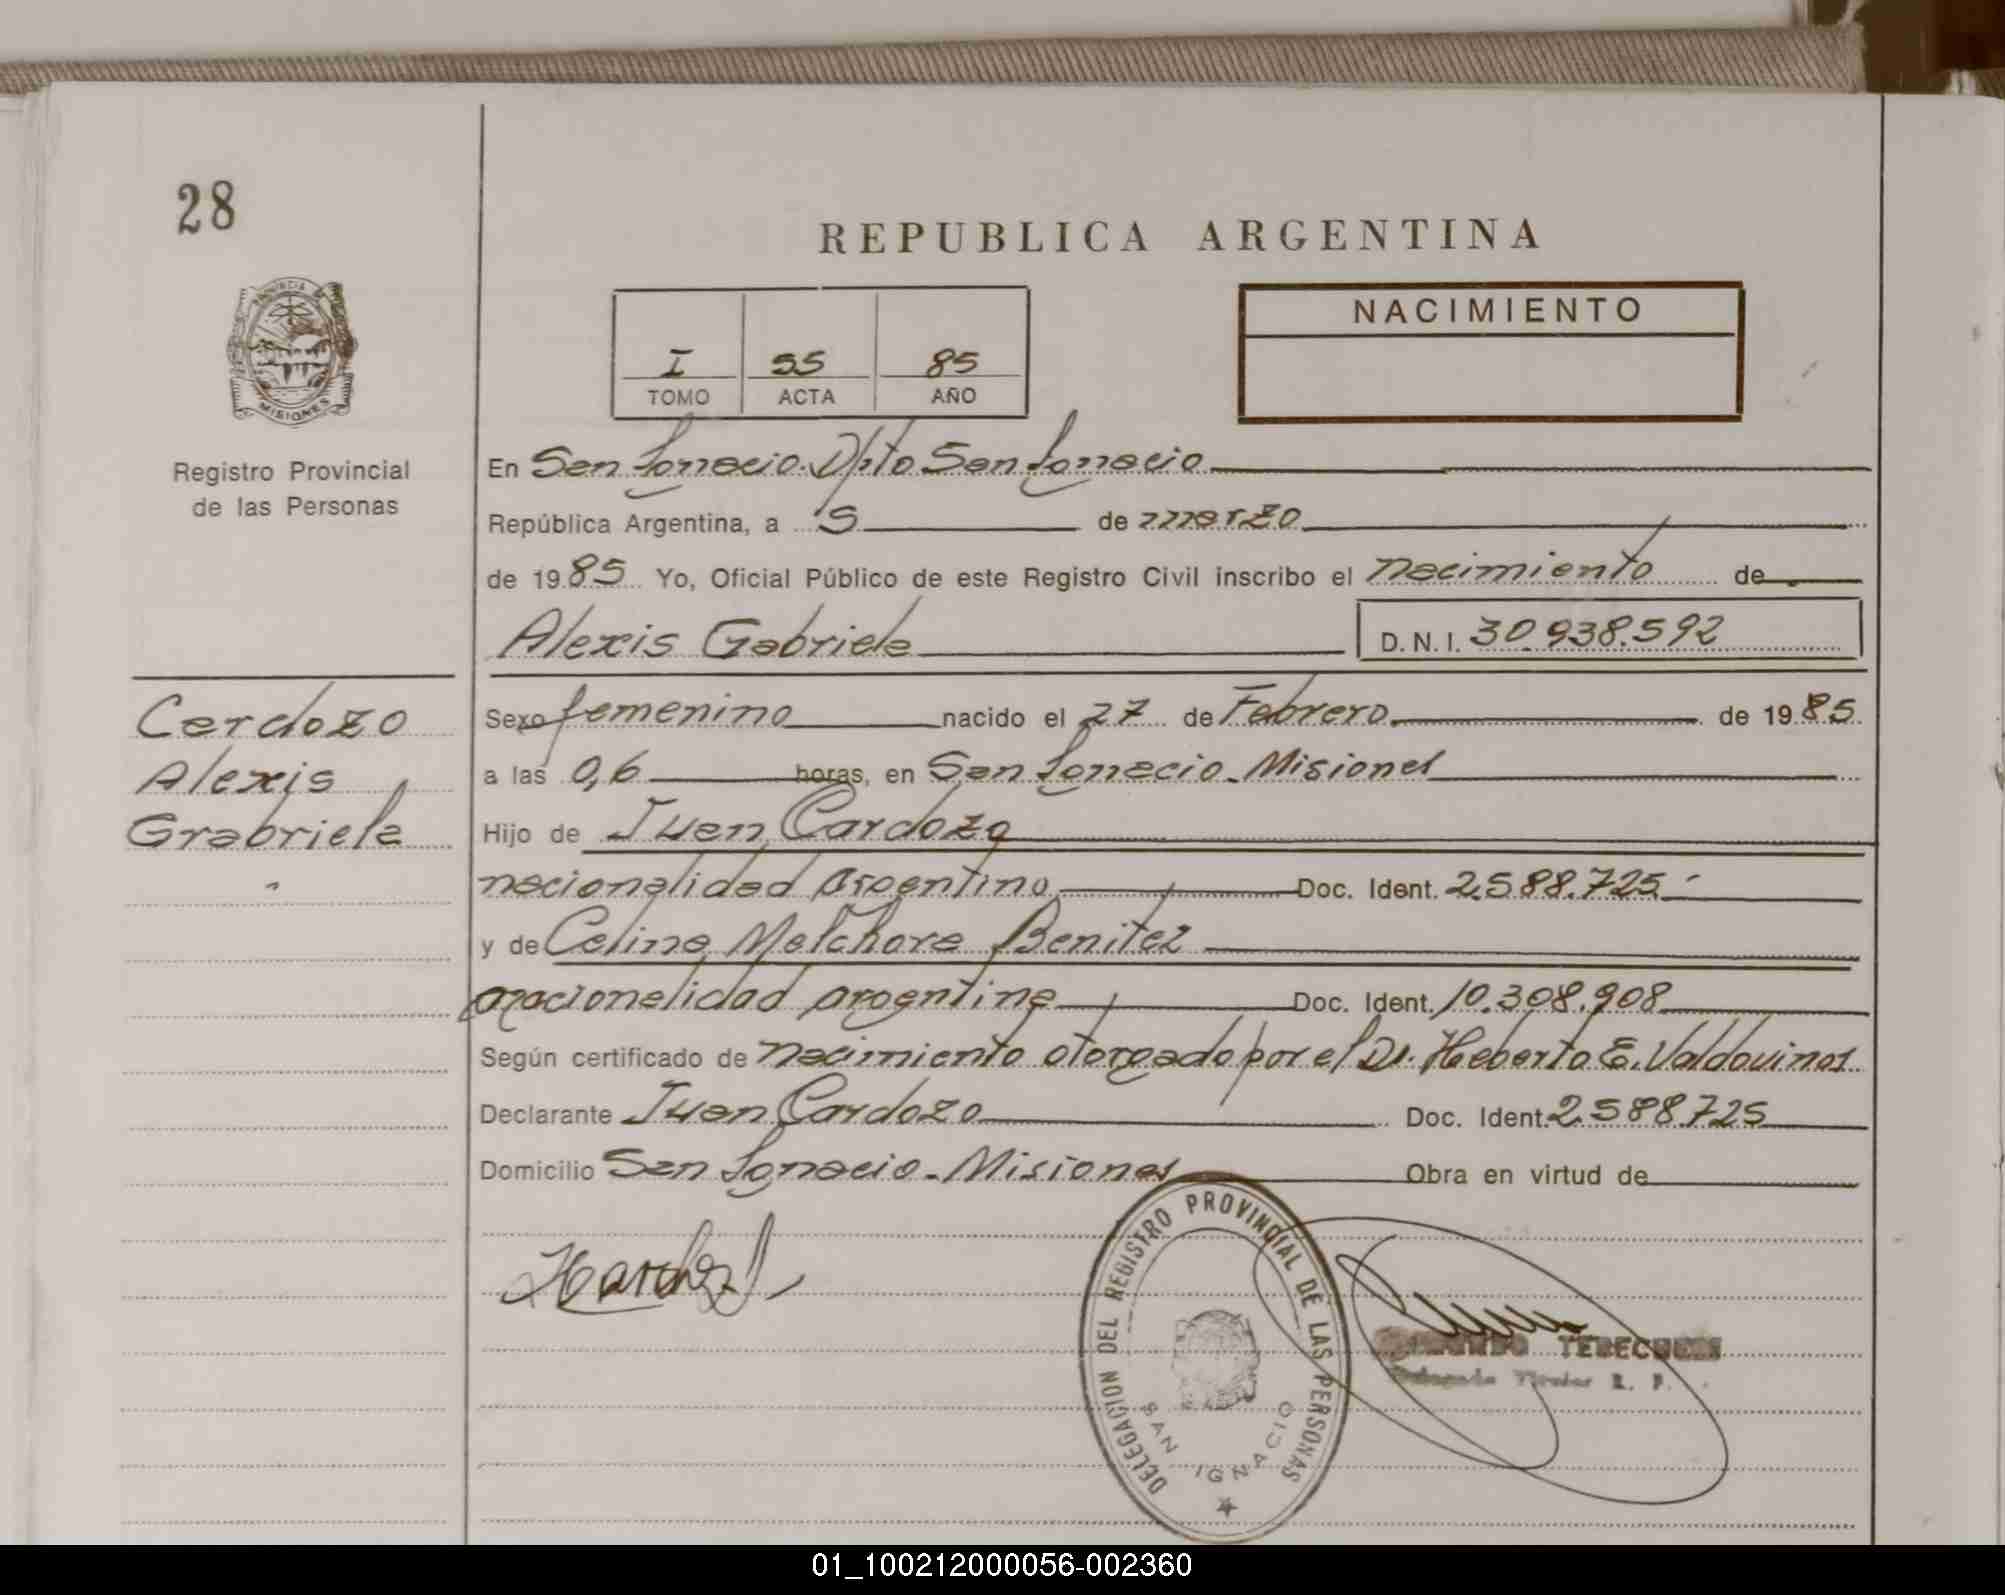 28
REPUBLICA ARGENTINA
NACIMIENTO
I 55 85
TOMO ACTA AÑO
PROVINCIA DE
MISIONES
Registro Provincial
de las Personas
En San Ignacio. Dpto San Ignacio
República Argentina, a 5 de marzo
de 1985 Yo, Oficial Público de este Registro Civil inscribo el nacimiento de
Alexis Gabriela D.N.I. 30.938.592
Cardozo
Alexis
Grabriela
Sexo femenino nacido el 27 de Febrero de 1985
a las 0,6 horas, en San Ignacio. Misiones
Hijo de Juan Cardozo
nacionalidad argentino Doc. Ident. 2.588.725
y de Celina Melchora Benitez
nacionalidad argentina Doc. Ident. 10.308.908
Según certificado de nacimiento otorgado por el Dr. Heberto E. Valdovinos
Declarante Juan Cardozo Doc. Ident. 2.588.725
Domicilio San Ignacio - Misiones Obra en virtud de
DELEGACION DEL REGISTRO PROVINCIAL DE LAS PERSONAS
SAN IGNACIO
Delegado Titular R. P.
01_100212000056-002360